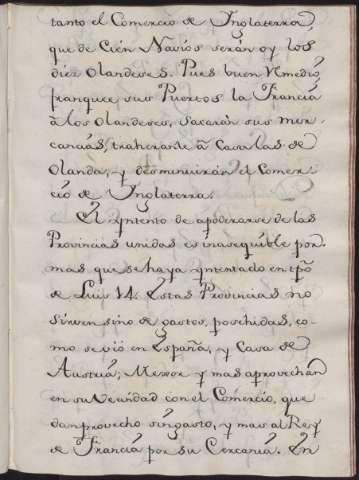 tanto el Comercio de Ynglaterra
que de Cién Navios serán oy los
diez Olandeses. Pues buen Rmedio,
franquee sus Puertos la Francia
à los Olandeses, sacarán sus mer-
cancías, traheranle à Casa las de
Olanda, y desminuirán el Comer-
cio de Ynglaterra.
El Yntento de apoderarse de las
Provincias unidas es inasequible por-
mas que se haya yntentado en tpõ
de Luis 14. Estas Provincias no
sirven sino de gastos, posehidas, co-
mo se vió en España, y Casa de
Austria; Mexor y mas aprovechan
en su Vecindad con el Comercio, que
dan provecho sin gasto, y mas al Rey
de Francia por su Cercania. En